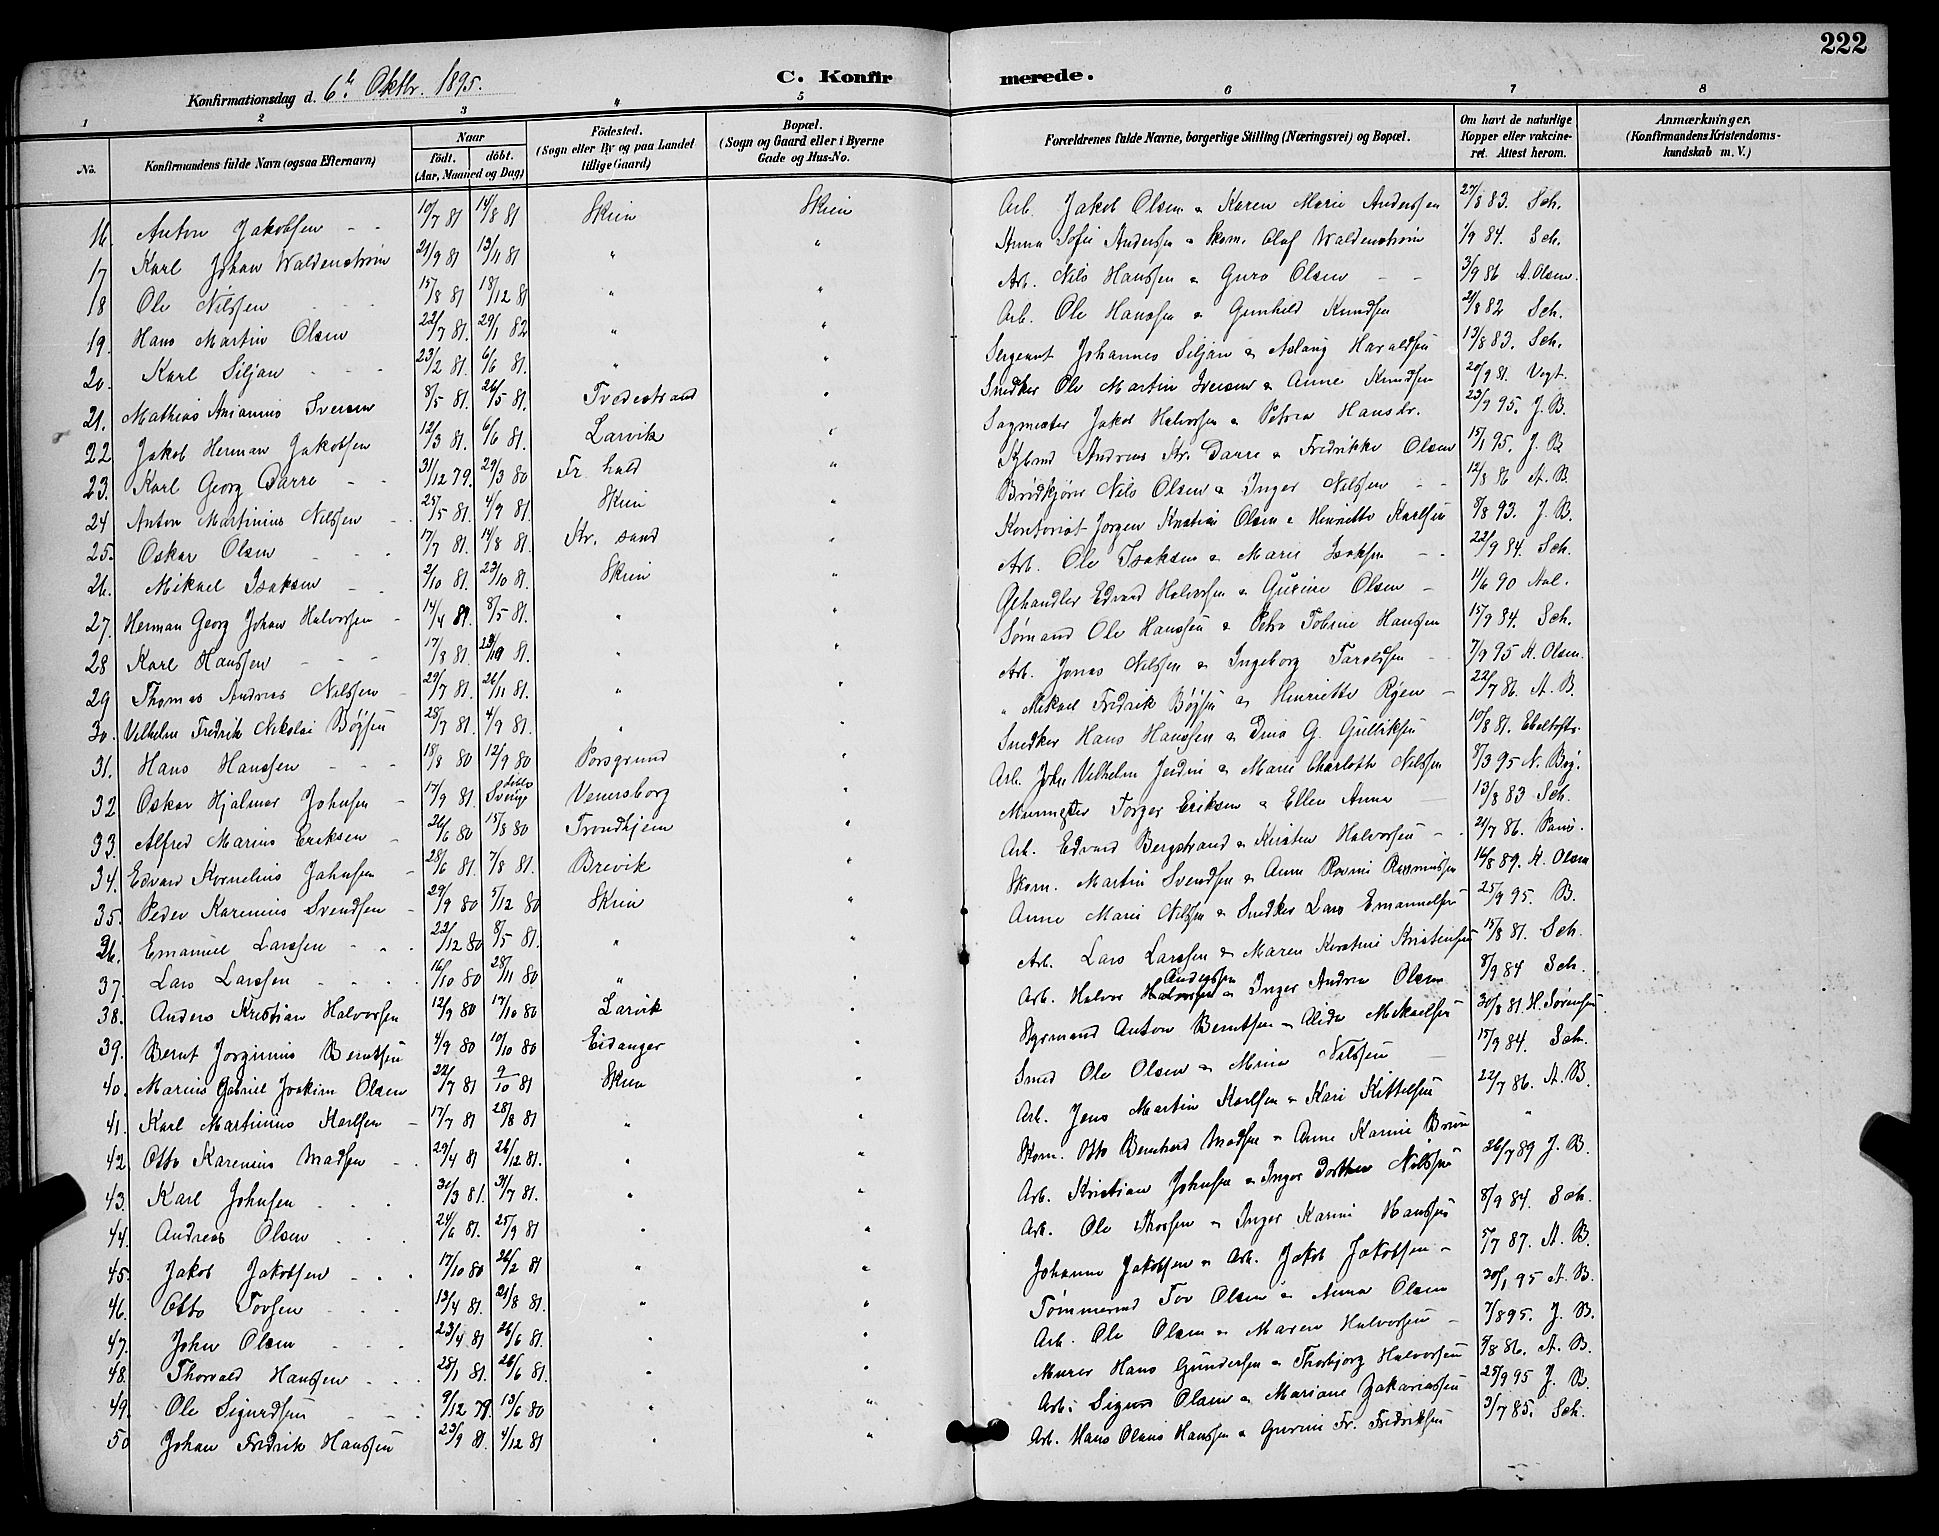 222
C. Konfirmerede.
Konfirmationsdag d. 6te Oktbr. 1895.
1 2 3 4 5 6 7 8
No. Konfirmandens fulde Navn (ogsaa Efternavn) Naar födt. döbt. (Aar, Maaned og Dag) Födested. (Sogn eller By og paa Landet tillige Gaard) Bopæl. (Sogn og Gaard eller i Byerne Gade og Hus-No. Forældrenes fulde Navne, borgerlige Stilling (Næringsvei) og Bopæl. Om havt de naturlige Kopper eller vakcineret. Attest herom. Anmærkninger. (Konfirmandens Kristendomskundskab m. V.)
16. Anton Jakobsen 10/7 81 14/8 81 Skien Skien Arb. Jakob Olsen & Karen Marie Anderssen 27/8 83. Sch.
17 Karl Johan Waldenström 21/9 81 13/11 81 " " Anna Sofie Anderssen & Skom. Olaf Waldenström 1/9 84. Sch.
18 Ole Nilssen 15/8 81 18/12 81 " " Arb. Nils Hanssen & Guro Olsen 3/9 86 A. Olsen.
19. Hans Martin Olsen 22/7 81. 29/1 82 " " Arb. Ole Hanssen & Gunhild Knudsen 21/8 82 Sch.
20. Karl Siljan 23/2 81. 6/6 81. " " Sergeant Johannes Siljan & Aslaug Haraldsen 13/8 83. Sch.
21. Mathias Anianius Iversen 8/5 81. 26/5 81. Tvedestrand " Snedker Ole Martin Iversen & Anne Knudsen 20/9 81. Vogt.
22 Jakob Herman Jakobsen 12/3 81. 6/6 81. Larvik " Sagmester Jakob Halvorsen & Petra Hansdr. 23/9 95. J. B.
23. Karl Georg Darre 31/12 79. 29/3 80 Fr. hald " Andreas Kr. Darre & Fredrikke Olsen 15/1 95. J. B.
24 Anton Martinius Nilssen 25/5 81. 4/9 81. Skien " Brödkjörer Nils Olsen & Inger Nilssen 12/8 86 A. B.
25. Oskar Olsen 17/7 81. 14/8 81. Kr. sand " Kontorist Jørgen Kristian Olsen & Henriette Karlsen 9/8 93. J. B.
26. Mikael Isaksen 2/10 81. 23/10 81. Skien " Arb. Ole Isaksen & Marie Isaksen 22/9 84. Sch.
27. Herman Georg Johan Halvorsen 14/4 81. 8/5 81. " " Edvard Halvorsen & Gurine Olsen 11/6 90 Aal.
28 Karl Hanssen 17/8 81. 23/10 81. " " Sømand Ole Hanssen & Petra Tobine Hanssen 15/9 84. Sch.
29 Thomas Andreas Nilssen 29/7 81. 26/11 81. " " Arb. Jonas Nilssen & Ingeborg Taraldsen 7/9 95 A. Olsen.
30. Vilhelm Fredrik Nikolai Böysen 28/7 81. 4/9 81. " " " Mikael Fredrik Böysen & Henriette Ryen 22/7 86. A. B.
31. Hans Hanssen 18/8 80 12/9 80 Porsgrund " Snedker Hans Hanssen & Dina G. Gulliksen 10/8 81. Ebeltoft
32 Oskar Hjalmar Johnsen 17/9 81. döbt Sverige Venersborg " Arb. John Vilhelm & Marie Charlotte Nilssen 8/3 95 N. Bog.
33. Alfred Marius Eriksen 26/6 80 15/8 80 Trondhjem " Murmester Torger Eriksen & Ellen Anna 13/8 83 Sch.
34. Edvard Kornelius Johnsen 28/6 81. 7/8 81. Brevik " Arb. Edvard Bergstrand & Kirsten Halvorsen 21/7 86.
35. Peder Karenius Svendsen 29/9 80 5/12 80 Skien " Skom. Martin Svendsen & Anne Rasmussen 16/8 89. A. Olsen
36. Emanuel Larssen 22/12 80 8/5 81. " " Anne Marie Nilssen & Snedker Lars Emanuelsen 25/9 95. B.
37. Lars Larssen 16/10 80 28/11 80 " " Arb. Lars Larssen & Maren Kirstine Kristensen 15/8 81. Sch.
38. Anders Kristian Halvorsen 12/9 80 17/10 80 Larvik " Arb. Halvor Halvorsen Anderssen & Inger Andrea Olsen 8/9 84 Sch.
39. Bernt Jorginius Berntsen 4/9 80 10/10 80 Eidanger " Anton Berntsen & Alida Mikaelsen 30/8 81. H. Sørensen
40. Marius Gabriel Joakim Olsen 22/7 81 9/10 81 Skien " Smed Ole Olsen & Mina Nilssen 15/9 84. Sch.
41. Karl Martinius Karlsen 17/7 81 28/8 81 " " Arb. Jens Martin Karlsen & Kari Kittelsen 22/7 86. A. B.
42 Otto Karenius Madsen 29/4 81 26/12 81. " " Skom. Otto Bernhard Madsen & Anne Karine Bruu "
43. Karl Johnsen 30/3 81. 31/7 81. " " Arb. Kristian Johnsen & Inger Dorthea Nilssen 26/7 89 J. B.
44. Andreas Olsen 24/6 81. 25/9 81 " " Arb. Ole Thorsen & Inger Karine Hanssen 8/9 84. Sch.
45. Jakob Jakobsen 17/10 80 26/2 81 " " Johanne Jakobsen & Arb. Jakob Jakobsen 5/7 87. A. B.
46. Otto Torsen 13/4 81. 21/8 81. " " Tömmermd Tov Olsen & Anna Olsen 30/1 95 A. B.
47. John Olsen 23/4 81 26/6 81. " " Arb. Ole Olsen & Maren Halvorsen 7/8 95. J. B.
48. Thorvald Hanssen 28/1 81. 26/6 81. " " Murer Hans Gundersen & Thorbjorg Halvorsen 5/8 86. A. B.
49. Ole Sigurdsen 9/12 79. 13/6 80 " " Arb. Sigurd Olsen & Mariane Zakariassen 25/9 95 J. B.
50 Johan Fredrik Hanssen 23/9 81. 4/12 81 " " Arb. Hans Olaus Hanssen & Gurine Fr. Fredriksen 3/7 85. Sch.